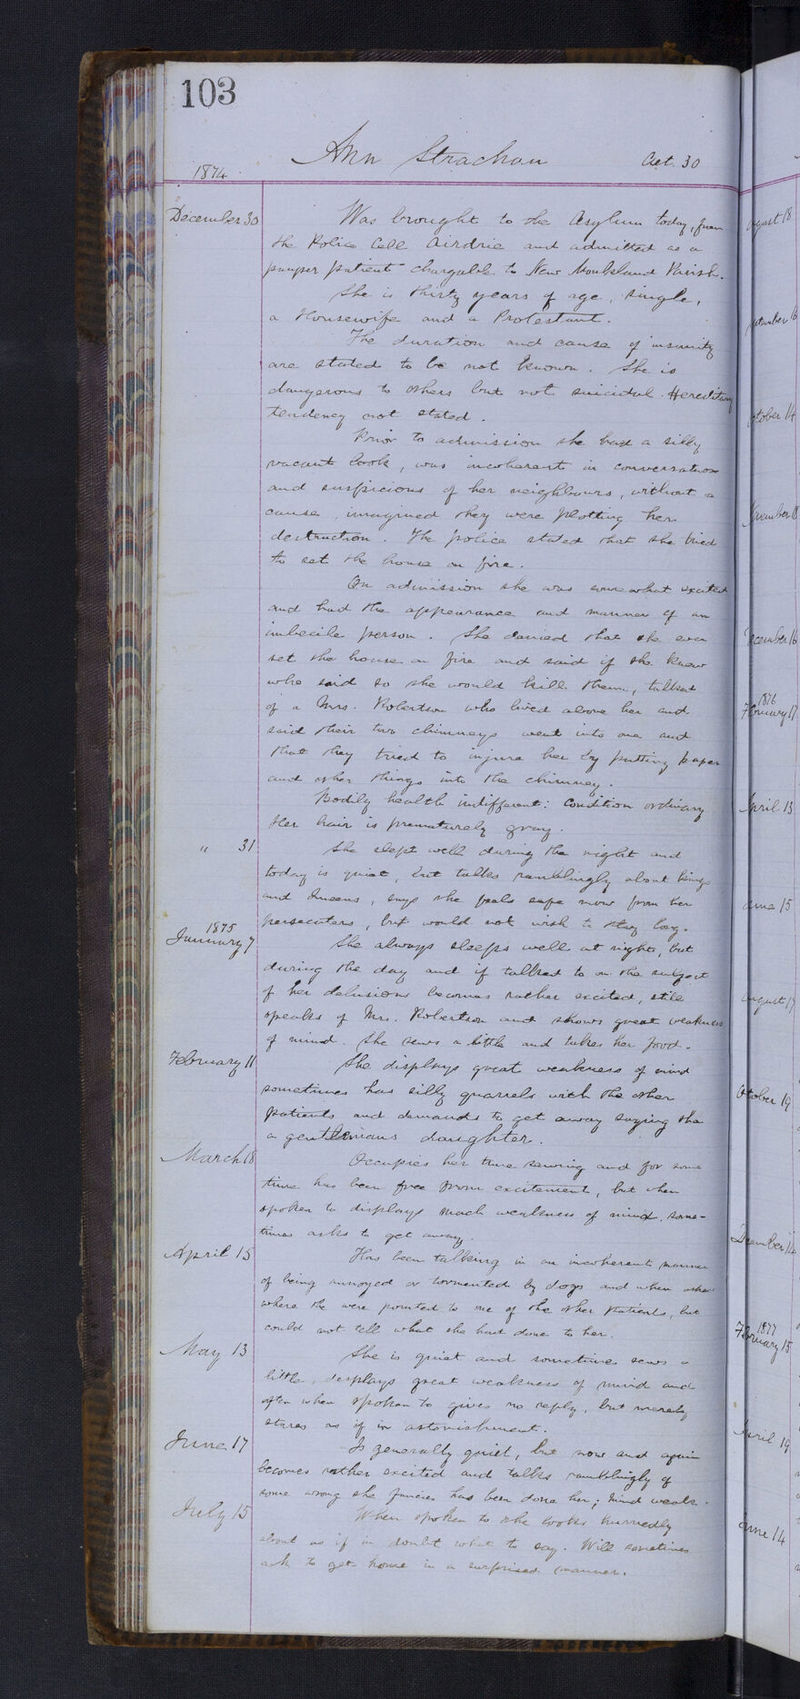 103
Ann Strachan Aet. 30
1874
December 30 Was brought to the Asylum today, from
the Police Cell Airdrie and admitted as a
pauper patient chargable to New Monkland Parish.
She is thirty years of age, single,
a Housewife and a Protestant.
The duration and cause of insanity
are stated to be not known. She is
dangerous to others but not suicidal. Hereditary
tendency not stated.
Prior to admission she had a silly
vacant look, was incoherent in conversation
and suspicious of her neighbours, without a
cause imagined they were plotting her
destruction. The police stated that she tried
to set the house on fire.
On admission she was somewhat excited
and had the appearance and manner of an
imbecile person. She denied that she ever
set the house on fire and said if she knew
who said so she would kill them, talked
of a Mrs. Robertson who lived above her and
said their two chimneys went into one and
that they tried to injure her by putting paper
and other things into the chimney.
Bodily health indifferent: Condition ordinary
Her hair is prematurely gray.
" 31 She slept well during the night and
today is quiet, but talks ramblingly about kings
and Queens, says she feels safe now from her
persecutors, but would not wish to stay long.
1875
January 7 She always sleeps well at night, but
during the day and if talked to on the subject
of her delusions becomes rather excited, still
speaks of Mrs. Robertson and shows great weakness
of mind. She sews a little and takes her food.
February 11 She displays great weakness of mind
sometimes has silly quarrels with the other
patients and demands to get away saying she
a gentlemans daughter.
March 18 Occupies her time sewing and for some
time has been free from excitement, but when
spoken to displays much weakness of mind, some-
times asks to get away.
April 15 Has been talking in an incoherent manner
of being annoyed or tormented by dogs and when asked
where the were pointed to one of the other patients, but
could not tell what she had done to her.
May 13 She is quiet and sometimes sews a
little, displays great weakness of mind and
often when spoken to gives no reply, but merely
stares as if in astonishment.
June 17 Is generally quiet, but now and again
becomes rather excited and talks ramblingly of
some wrong she fancies has been done her; mind weak.
July 15 When spoken to she looks hurriedly
about as if in doubt what to say. Will sometimes
ask to get home in a surprised manner.
August 18
ptember 16
ctober 14
November 18
ecember 16
1876
February 17
April 13
June 15
August 17
October 19
December 14
1877
February 15
April 19
June 14